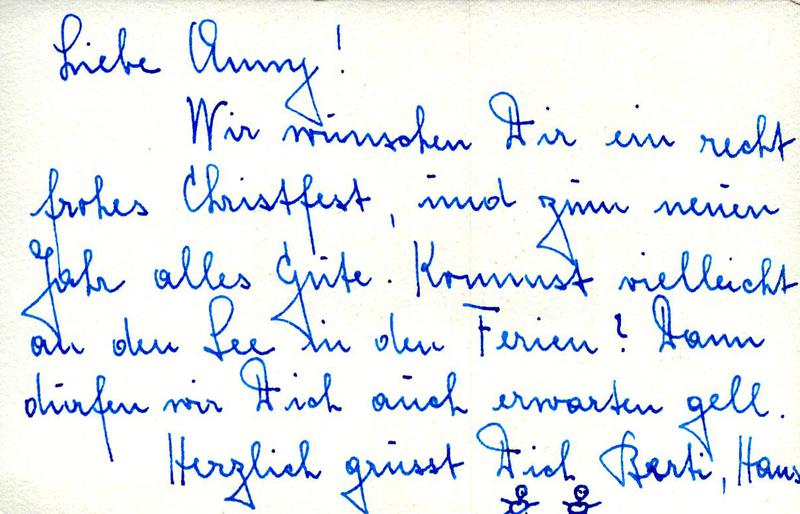 Liebe Anny!
Wir wünschen Dir ein recht
frohes Christfest, und zum neuen
Jahr alles Gute. Kommst vielleicht
an den See in den Ferien? Dann
dürfen wir Dich auch erwarten gell.
Herzlich grüsst Dich Berti, Hans